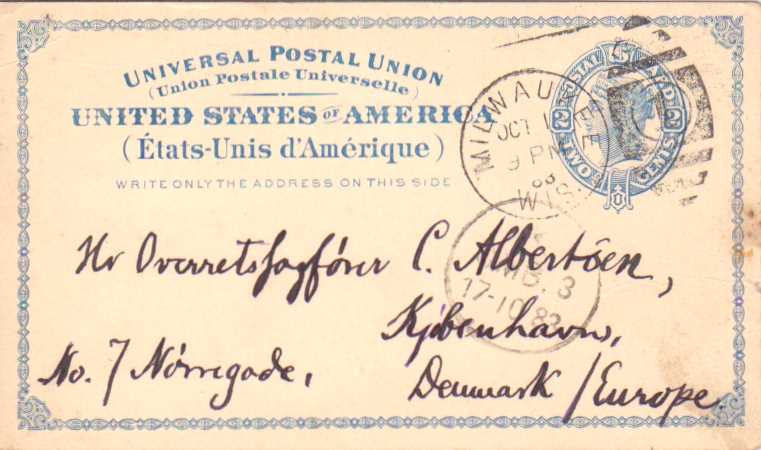 UNIVERSAL POSTAL UNION
(Union Postale Universelle)
UNITED STATES OF AMERICA
(États-Unis d'Amérique)
WRITE ONLY THE ADDRESS ON THIS SIDE
2 2
TWO CENTS
MILWAUKEE
OCT 1
9 PM
83
WIS.
MB. 3
17-10 83
Hr Overretssagfører C. Albertsen,
Kjøbenhavn,
No. 7 Nørregade,
Denmark / Europe.